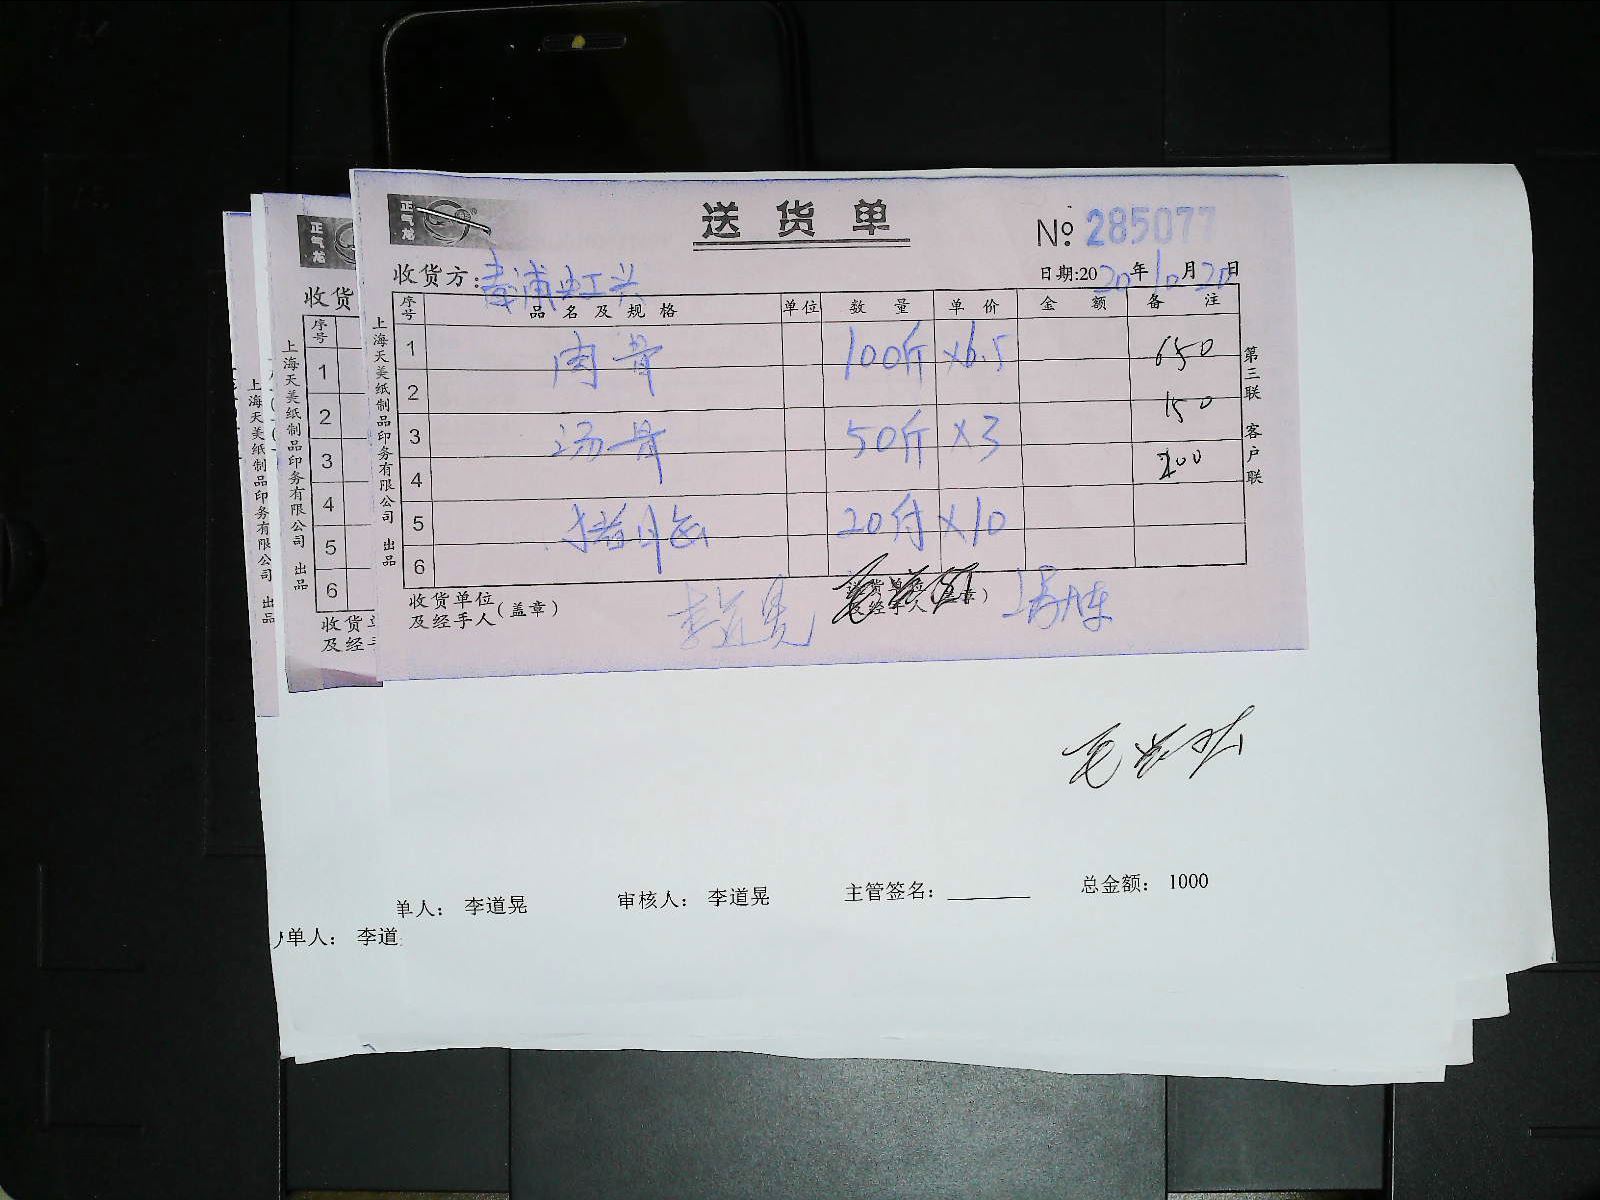 正气龙
送货单
№ 285077
收货方:
日期:2020年10月20日
序号 品名及规格 单位 数量 单价 金额 备注
1 肉骨 100斤 ×6.5 650
2 150
3 汤骨 50斤 ×3
4 200
5 猪 20付 ×10
6
收货单位及经手人(盖章) 李道晃
上海天美纸制品印务有限公司 出品
第三联 客户联
正气龙
收货
序号
1
2
3
4
5
6
收货
及经
上海天美纸制品印务有限公司 出品
上海天美纸制品印务有限公司 出
单人: 李道晃 审核人: 李道晃 主管签名: 总金额: 1000
单人: 李道